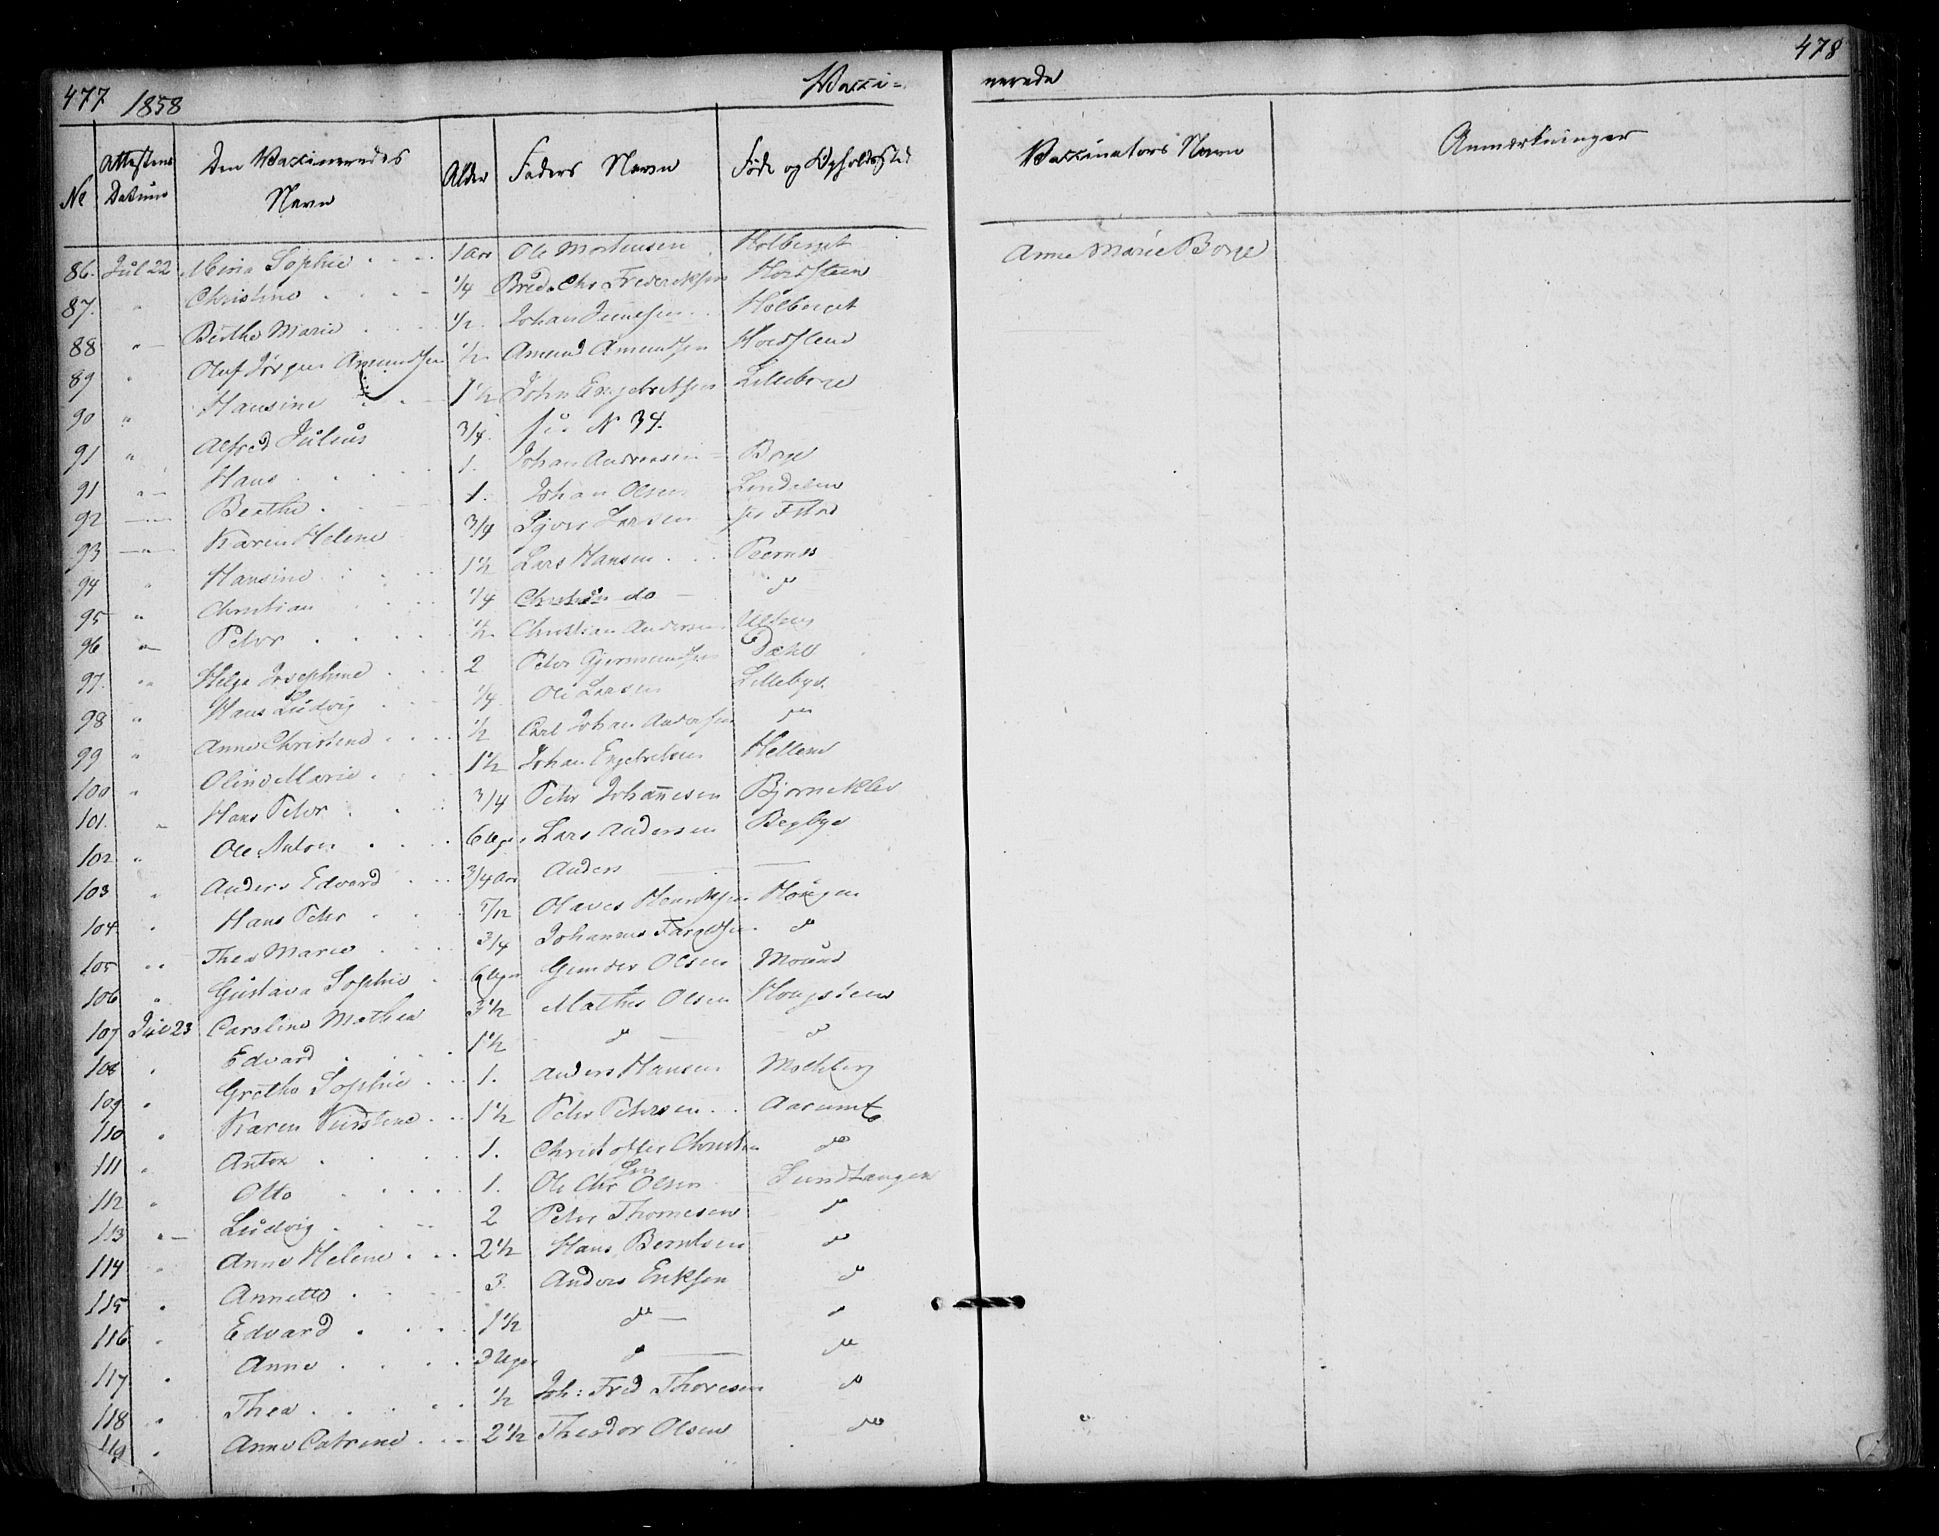 477 1858 Vacci-
nerede 478
No Attestens Datum Den Vaccineredes Navn Alder Faders Navn Føde og Opholdssted Vaccinators Navn Anmærkninger
86. Jul 22 Mina Sophie 1 Aar Ole Mortensen Holberget Anne Marie Borge
87. " Christine 1/4 Fredericksen
88 " Berthe Marie 1/2 Johan Jensen Holberget
89 " Oluf Jørgen Amundsen 1/2 Amund Amundsen
90 " Hansine 1 1/2 John Engebretsen Lilleborge
91 " Alfred Julius 3/4 see N 34.
91 " Hans 1. Johan Andreasen Borge
92 " Berthe 1. Johan Olsen
93 " Karen Helene 3/4 Larsen
94 " Hansine 1 1/2 Lars Hansen
95 " Christian 1/4 Christian do
96 " Peter 1/2 Christian Andersen
97. " Helga Josephine 2 Peter Gjermundsen Dæhle
98 " Hans Ludvig 1/4 Ole Larsen Lillebye
99 " Anne Christine 1/2 Carl Johan Andersen do
100 " Oline Marie 1 1/2 Johan Engebretsen Hellene
101. " Hans Peter 3/4 Peter Johannesen Bjørneklev
102 " Ole Anton 6 Uger Lars Andersen Begbye
103 " Anders Edvard 3/4 Aar Anders —
104 " Hans Peter 7/12 Olaves Henriksen Haugen
105 " Thea Marie 3/4 Johannes do
106 " Gustava Sophie 6 Uger Gunder Olsen Moum
107 Jul 23 Caroline Mathea 3 1/2 Mathis Olsen
108 " Edvard 1 1/2 do do
109 " Grethe Sophie 1. Anders Hansen
110 " Karen Kirstine 1 1/2 Peter Petersen
111 " Anton 1. Christoffer Christen
sen
112 " Otto 1. Ole Chr Olsen Sundtangen
113 " Ludvig 2 Peter Thomesen do
114 " Anne Helene 2 1/2 Hans Berntsen do
115 " Annette 3 Anders Eriksen do
116 " Edvard 1 1/2 do do
117 " Anne 3 Uger do do
118 " Thea 1/2 Joh: Fred Thoresen do
119 " Anne Catrine 2 1/2 Theodor Olsen do